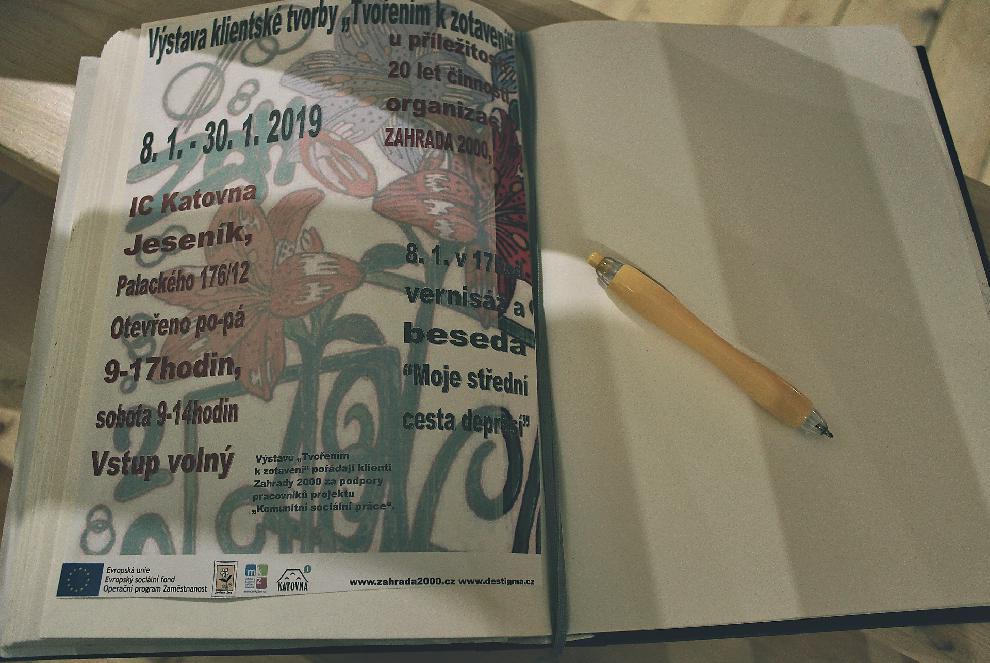 Výstava klientské tvorby „Tvořením k zotavení“
u příležitosti
20 let činnosti
organizace
ZAHRADA 2000,
8. 1. - 30. 1. 2019
IC Katovna
Jeseník,
Palackého 176/12
Otevřeno po-pá
9-17hodin,
sobota 9-14hodin
Vstup volný
8. 1. v 17hod.
vernisáž a
beseda
“Moje střední
cesta depresí”
Výstavu „Tvořením
k zotavení“ pořádají klienti
Zahrady 2000 za podpory
pracovníků projektu
„Komunitní sociální práce“.
Evropská unie
Evropský sociální fond
Operační program Zaměstnanost
KATOVNA
www.zahrada2000.cz www.destigma.cz